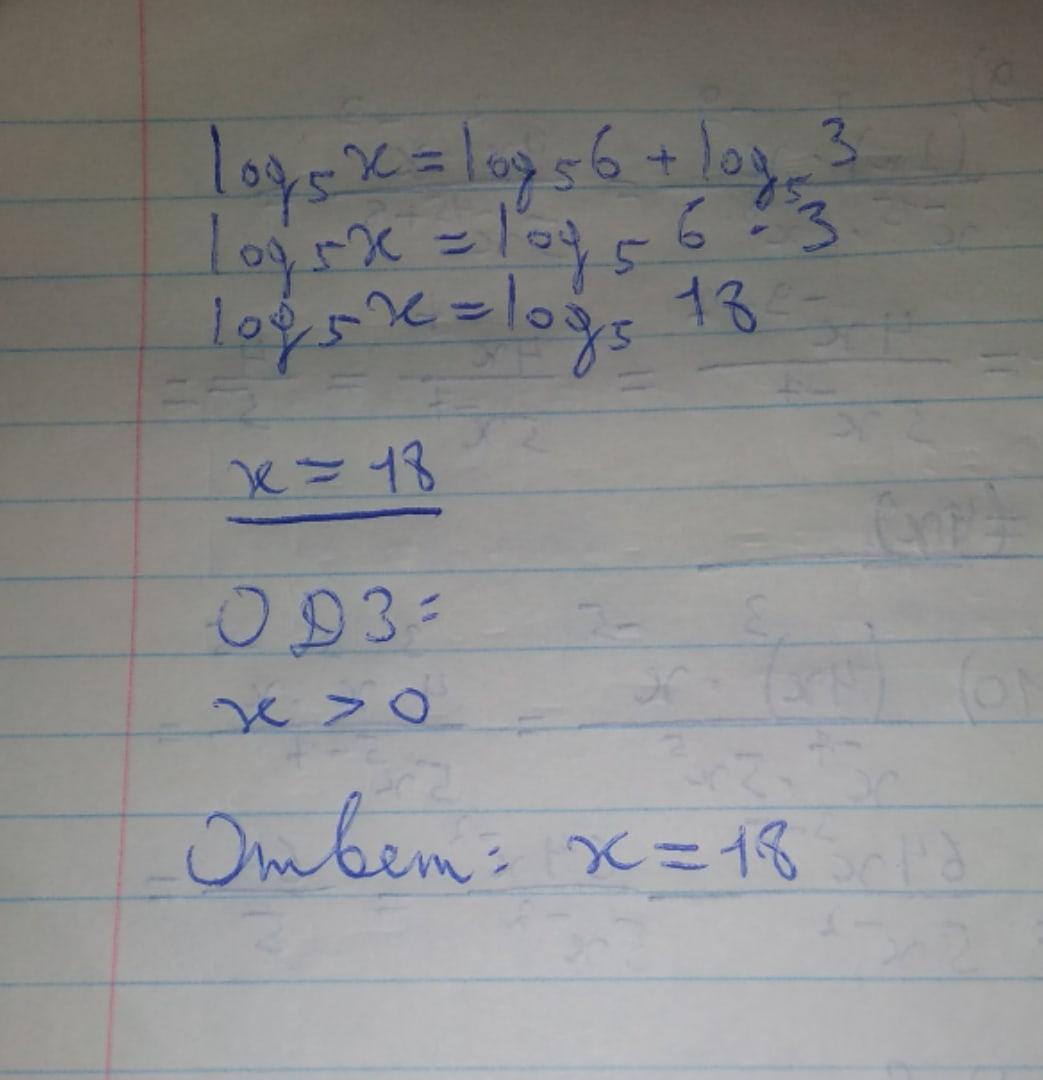 log₅ x = log₅ 6 + log₅ 3
log₅ x = log₅ 6 · 3
log₅ x = log₅ 18
x = 18
ОДЗ:
x > 0
Ответ: x = 18